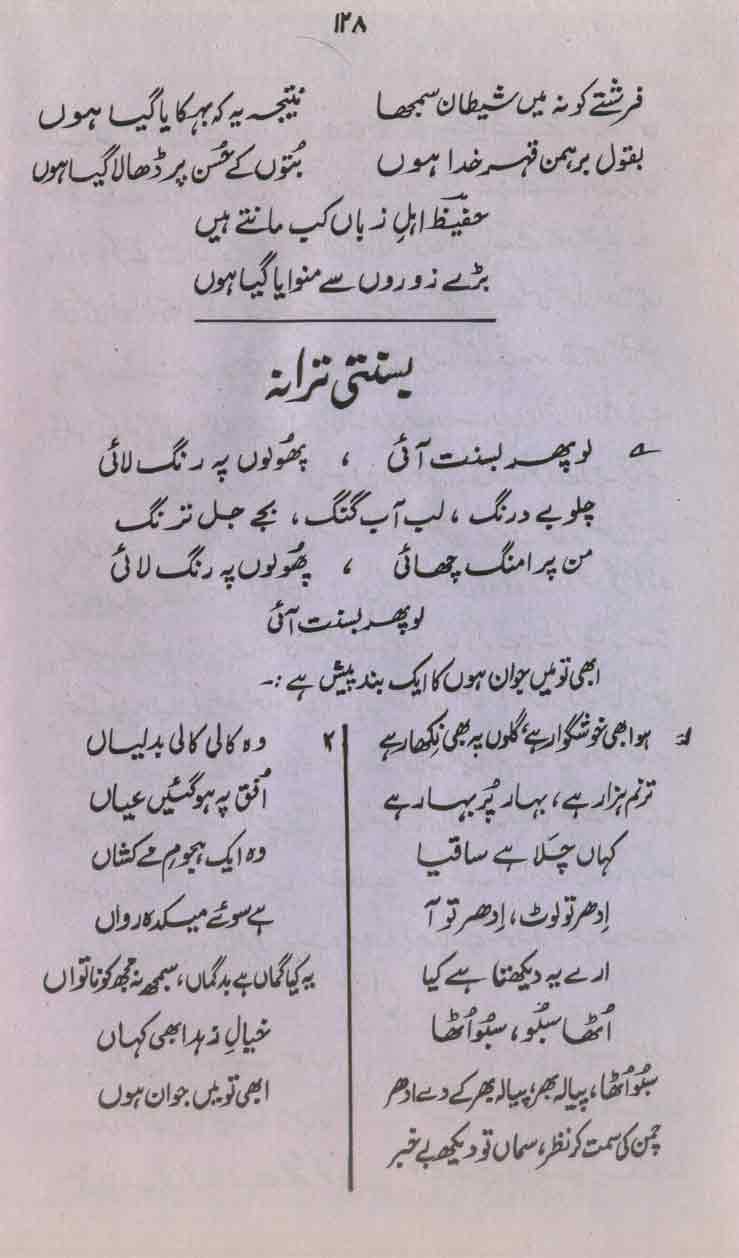 ۱۲۸
فرشتے کو نہ میں شیطان سمجھا نتیجہ یہ کہ بہکایا گیا ہوں
بقول برہمن قہر خدا ہوں بُتوں کے حُسن پر ڈھالا گیا ہوں
حفیظؔ اہلِ زباں کب مانتے ہیں
بڑے زوروں سے منوایا گیا ہوں
بسنتی ترانہ
؎ لو پھر بسنت آئی ، پھُولوں پہ رنگ لائی
چلو بے درنگ، لب آب گنگ، بجے جل ترنگ
من پر امنگ چھائی ، پھُولوں پہ رنگ لائی
لو پھر بسنت آئی
ابھی تو میں جوان ہوں کا ایک بند پیش ہے :۔
؎۱ ہوا بھی خوشگوار ہے، گلوں پہ بھی نکھار ہے
ترنم ہزار ہے، بہار پُر بہار ہے
کہاں چَلا ہے ساقیا
اِدھر تو لوٹ، اِدھر تو آ
ارے یہ دیکھتا ہے کیا
اُٹھا سبُو، سبُو اُٹھا
سبُو اُٹھا، پیالہ بھر، پیالہ بھر کے دے ادھر
چمن کی سمت کر نظر، سماں تو دیکھ بے خبر
۲ وہ کالی کالی بدلیاں
اُفق پہ ہو گئیں عیاں
وہ ایک ہجومِ مے کشاں
ہے سوئے میکدہ رواں
یہ کیا گماں ہے بدگماں، سمجھ نہ مجھ کو ناتواں
خیالِ زہد ابھی کہاں
ابھی تو میں جوان ہوں